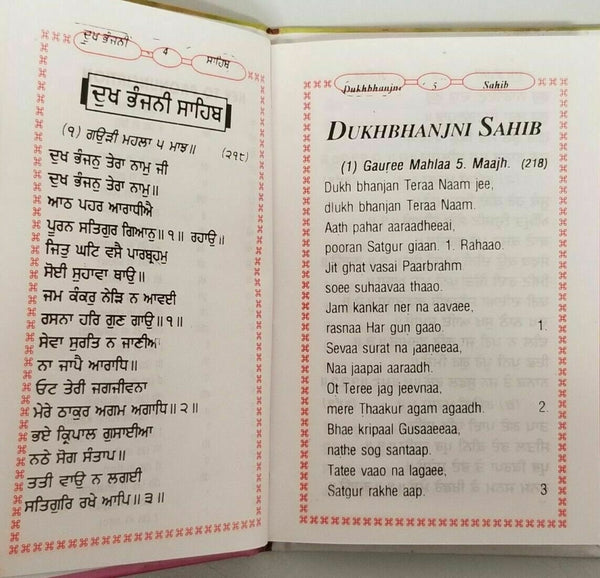 ਦੁਖ ਭੰਜਨੀ 4 ਸਾਹਿਬ
ਦੁਖ ਭੰਜਨੀ ਸਾਹਿਬ
(੧) ਗਉੜੀ ਮਹਲਾ ੫ ਮਾਝ॥ (੨੧੮)
ਦੁਖ ਭੰਜਨੁ ਤੇਰਾ ਨਾਮੁ ਜੀ
ਦੁਖ ਭੰਜਨੁ ਤੇਰਾ ਨਾਮੁ॥
ਆਠ ਪਹਰ ਆਰਾਧੀਐ
ਪੂਰਨ ਸਤਿਗੁਰ ਗਿਆਨੁ॥੧॥ ਰਹਾਉ॥
ਜਿਤੁ ਘਟਿ ਵਸੈ ਪਾਰਬ੍ਰਹਮੁ
ਸੋਈ ਸੁਹਾਵਾ ਥਾਉ॥
ਜਮ ਕੰਕਰੁ ਨੇੜਿ ਨ ਆਵਈ
ਰਸਨਾ ਹਰਿ ਗੁਣ ਗਾਉ॥੧॥
ਸੇਵਾ ਸੁਰਤਿ ਨ ਜਾਣੀਆ
ਨਾ ਜਾਪੈ ਆਰਾਧਿ॥
ਓਟ ਤੇਰੀ ਜਗਜੀਵਨਾ
ਮੇਰੇ ਠਾਕੁਰ ਅਗਮ ਅਗਾਧਿ॥੨॥
ਭਏ ਕ੍ਰਿਪਾਲ ਗੁਸਾਈਆ
ਨਠੇ ਸੋਗ ਸੰਤਾਪ॥
ਤਤੀ ਵਾਉ ਨ ਲਗਈ
ਸਤਿਗੁਰਿ ਰਖੇ ਆਪਿ॥੩॥
Dukhbhanjni 5 Sahib
DUKHBHANJNI SAHIB
(1) Gauree Mahlaa 5. Maajh. (218)
Dukh bhanjan Teraa Naam jee,
dlukh bhanjan Teraa Naam.
Aath pahar aaraadheeai,
pooran Satgur giaan. 1. Rahaao.
Jit ghat vasai Paarbrahm
soee suhaavaa thaao.
Jam kankar ner na aavaee,
rasnaa Har gun gaao. 1.
Sevaa surat na jaaneeaa,
Naa jaapai aaraadh.
Ot Teree jag jeevnaa,
mere Thaakur agam agaadh. 2.
Bhae kripaal Gusaaeeaa,
nathe sog santaap.
Tatee vaao na lagaee,
Satgur rakhe aap. 3